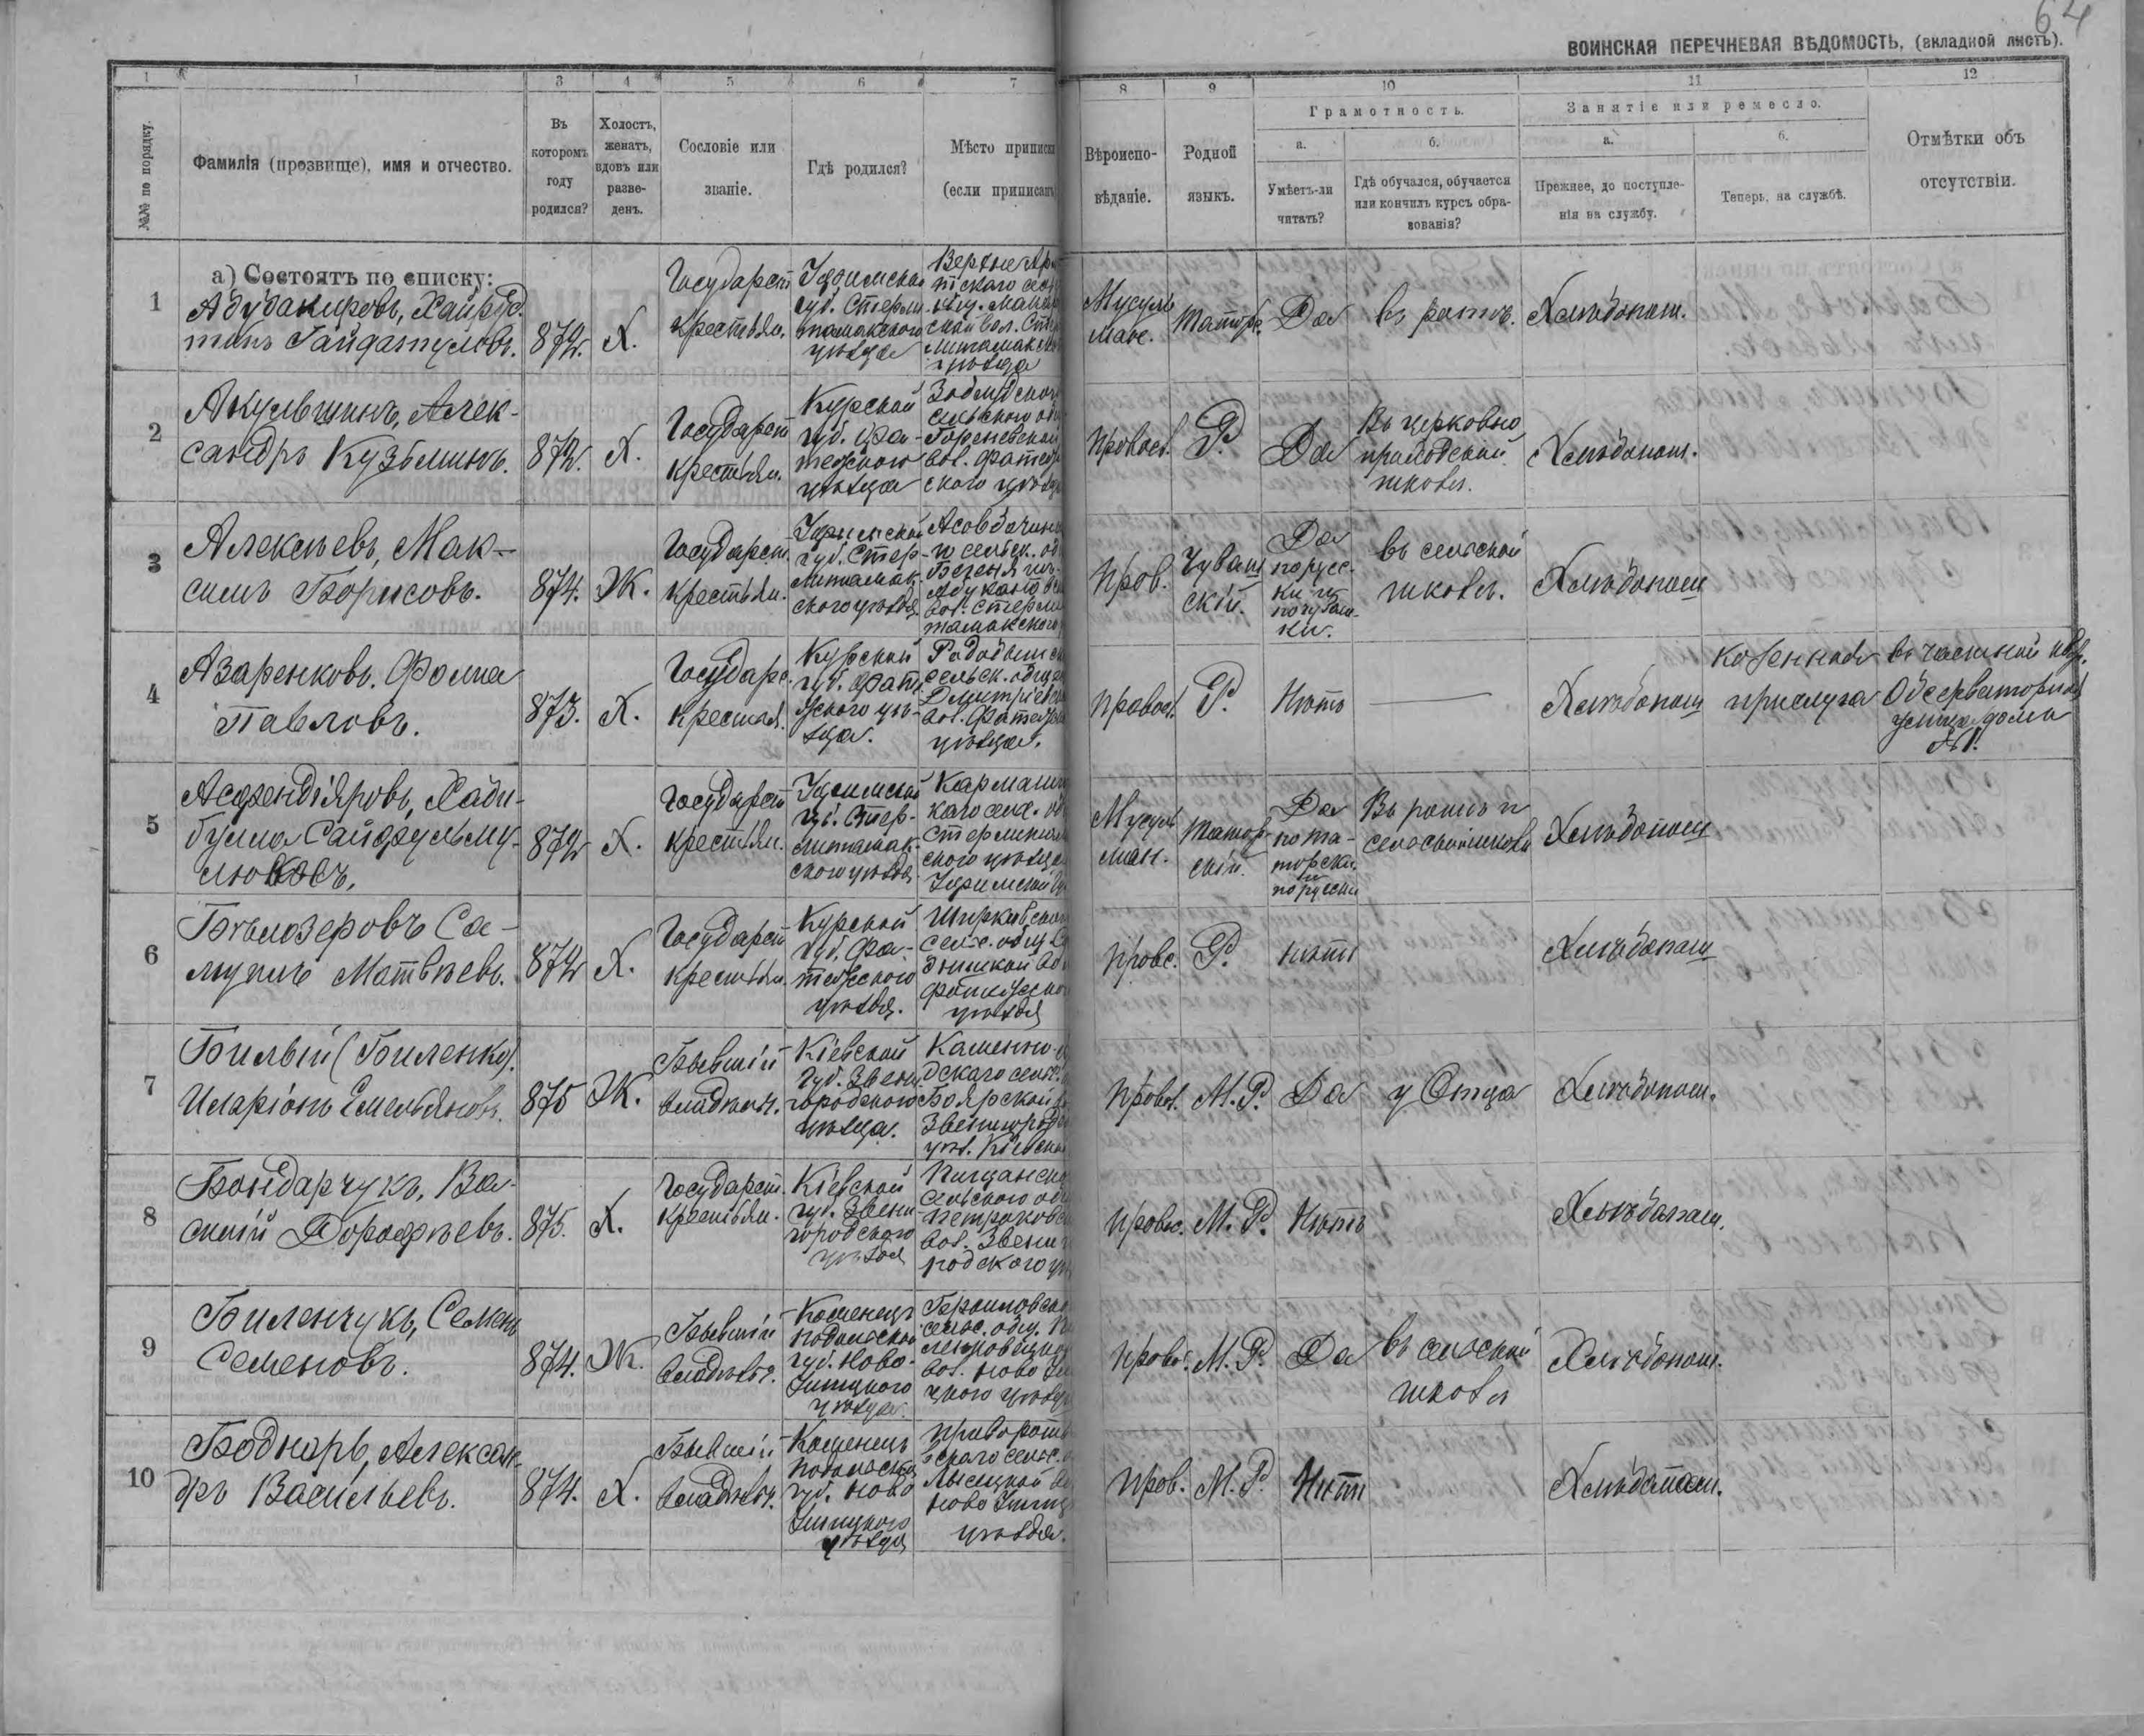 64
ВОИНСКАЯ ПЕРЕЧНЕВАЯ ВѢДОМОСТЬ, (вкладной листъ).
1 1 3 4 5 6 7 8 9 10 11 12
№№ по порядку.
Фамилія (прозвище), имя и отчество.
Въ
которомъ
году
родился?
Холостъ,
женатъ,
вдовъ или
разве-
денъ.
Сословіе или
званіе.
Гдѣ родился?
Мѣсто приписки
(если приписанъ
Вѣроиспо-
вѣданіе.
Родной
языкъ.
Грамотность.
а.
Умѣетъ-ли
читать?
б.
Гдѣ обучался, обучается
или кончилъ курсъ обра-
зованія?
Занятіе или ремесло.
а.
Прежнее, до поступле-
нія на службу.
б.
Теперь, на службѣ.
Отмѣтки объ
отсутствіи.
а) Состоятъ по списку:
1
Абубакировъ, Хайруд
тинъ Гайдатуловъ.
872.
Х.
Государст
крестьян.
Уфимской
губ. Стерли
тамакского
уѣзда
Верхне
уѣзда
Мусуль
ман.
Татар.
Да
Хлѣбопаш.
2
Акульшинъ, Алек-
сандръ Кузьминъ.
872.
Х.
Государст
крестьян.
Курской
губ. Фа-
тежского
уѣзда
сельского
вол. Фатеж
ского уѣзд
Правосл.
Р.
Да
Въ церковно
приходской
школѣ.
Хлѣбопаш.
3
Алексѣевъ, Мак-
симъ Борисовъ.
874.
Ж.
Государст.
крестьян.
Уфимской
губ. Стер-
литамак-
ского уѣзда
сельск.
вол. Стерли
тамакского
Прав.
Чуваш
скій.
Да
по русс-
ки и
по чуваш-
ки.
въ сельской
школѣ.
Хлѣбопаш
4
Азаренковъ. Фома
Павловъ.
873.
Х.
Государс.
крестья.
Курской
губ. Фате
жского уѣ-
зда.
сельск. общ
Дмитріев
вол. Фатеж
уѣзда.
Правосл.
Р.
Нѣтъ
—
Хлѣбопаш
козенная
прислуга
въ частной квар.
Обсерваторная
улица дома
№ 1.
5
Асфендіяровъ, Хаби-
булла Сайфульму-
люковъ.
872
Х.
Государст
крестьян.
Уфимской
губ. Стер-
литамак-
ского уѣзда
Стерлитам
ского уѣзда
Уфимской
Мусуль
ман.
Татар
скій.
Да
по та-
тарски
и
по русски
Хлѣбопаш
6
Бѣлозеровъ Са-
муилъ Матвѣевъ.
872
Х.
Государст
крестьян.
Курской
губ. Фа-
тежского
уѣзда.
сельс. общ
уѣзда
Правс.
Р.
нѣтъ
Хлѣбопаш
7
Билый (Биленко).
Иларіонъ Емельяновъ.
875
Ж.
Бывшій
владѣльч.
Кіевской
губ. Звени
городского
уѣзда.
Боярской
Звенигород
уѣз. Кіевск
Правос.
М. Р.
Да
у Отца
Хлѣбопаш.
8
Бондарчукъ, Ва-
силій Дорофѣевъ.
875.
Х.
Государст.
крестьян.
Кіевской
губ. Звени
городского
уѣзда
сельского
вол. Звениг
родского уѣ
Правос.
М. Р.
Нѣтъ
Хлѣбопаш.
9
Биленчукъ, Семенъ
Семеновъ.
874.
Ж.
Бывшій
владѣльч.
Каменец
Подольской
губ. Ново-
Ушицкого
уѣзда.
сельс. общ.
вол. Ново Уши
цкого уѣзда
Правос.
М. Р.
Да
въ сельской
школѣ
Хлѣбопаш.
10
Боднаръ, Алексан-
дръ Васильевъ.
874.
Х.
Бывшій
владѣльч.
Каменец
Подольской
губ. Ново
Ушицкого
уѣзда
Ново Ушиц
уѣзда.
Прав.
М. Р.
Нѣтъ
Хлѣбопаш.